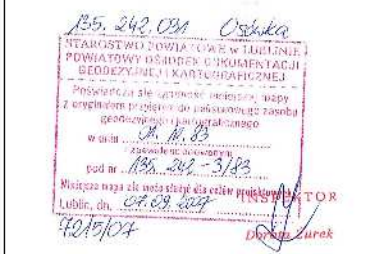 135. 242. 031 Osówka
STAROSTWO POWIATOWE w LUBLINIE
POWIATOWY OŚRODEK DOKUMENTACJI
GEODEZYJNEJ I KARTOGRAFICZNEJ
Poświadcza się zgodność niniejszej mapy
z oryginałem przyjętym do państwowego zasobu
geodezyjnego i kartograficznego
w dniu 83
pod nr 135. 242 - 3/83
Niniejsza mapa nie może służyć dla celów
INSPEKTOR
Lublin, dn. 07.09.2007
7215/07
Dorota Żurek